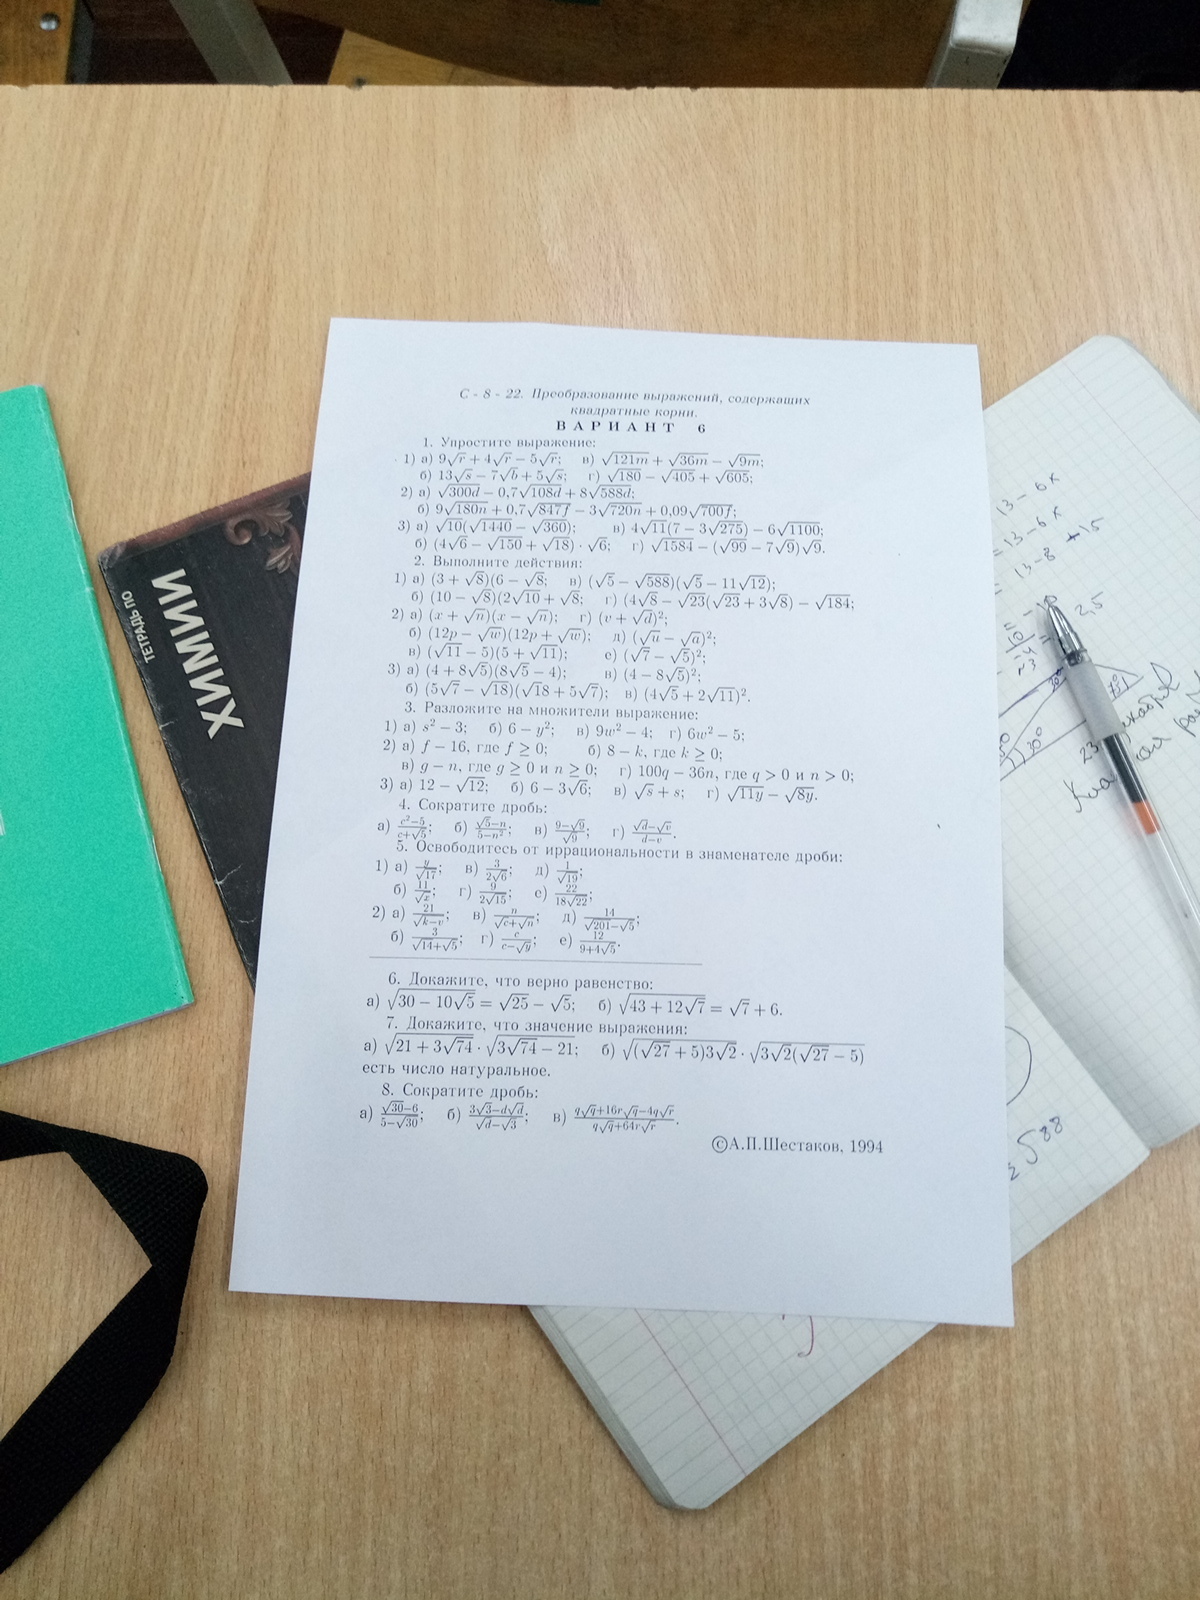 С - 8 - 22. Преобразование выражений, содержащих
квадратные корни.
ВАРИАНТ 6
1. Упростите выражение:
1) а) 9√r + 4√r − 5√r; в) √121m + √36m − √9m;
б) 13√s − 7√b + 5√s; г) √180 − √405 + √605;
2) а) √300d − 0,7√108d + 8√588d;
б) 9√180n + 0,7√847f − 3√720n + 0,09√700f;
3) а) √10(√1440 − √360); в) 4√11(7 − 3√275) − 6√1100;
б) (4√6 − √150 + √18) · √6; г) √1584 − (√99 − 7√9)√9.
2. Выполните действия:
1) а) (3 + √8)(6 − √8; в) (√5 − √588)(√5 − 11√12);
б) (10 − √8)(2√10 + √8; г) (4√8 − √23(√23 + 3√8) − √184;
2) а) (x + √n)(x − √n); г) (v + √d)²;
б) (12p − √w)(12p + √w); д) (√u − √a)²;
в) (√11 − 5)(5 + √11); е) (√7 − √5)²;
3) а) (4 + 8√5)(8√5 − 4); в) (4 − 8√5)²;
б) (5√7 − √18)(√18 + 5√7); в) (4√5 + 2√11)².
3. Разложите на множители выражение:
1) а) s² − 3; б) 6 − y²; в) 9w² − 4; г) 6w² − 5;
2) а) f − 16, где f ≥ 0; б) 8 − k, где k ≥ 0;
в) g − n, где g ≥ 0 и n ≥ 0; г) 100q − 36n, где q > 0 и n > 0;
3) а) 12 − √12; б) 6 − 3√6; в) √s + s; г) √11y − √8y.
4. Сократите дробь:
а) (c²−5)/(c+√5); б) (√5−n)/(5−n²); в) (9−√9)/√9; г) (√d−√v)/(d−v).
5. Освободитесь от иррациональности в знаменателе дроби:
1) а) y/√17; в) 3/(2√6); д) 1/√19;
б) 11/√x; г) 9/(2√15); е) 22/(18√22);
2) а) 21/(√k−v); в) n/(√c+√n); д) 14/(√201−√5);
б) 3/(√14+√5); г) c/(c−√y); е) 12/(9+4√5).
6. Докажите, что верно равенство:
а) √(30 − 10√5) = √25 − √5; б) √(43 + 12√7) = √7 + 6.
7. Докажите, что значение выражения:
а) √(21 + 3√74) · √(3√74 − 21); б) √((√27 + 5)3√2) · √(3√2(√27 − 5))
есть число натуральное.
8. Сократите дробь:
а) (√30−6)/(5−√30); б) (3√3−d√d)/(√d−√3); в) (q√q+16r√q−4q√r)/(q√q+64r√r).
©А.П.Шестаков, 1994
ТЕТРАДЬ ПО
ХИМИИ
13 − 6x
=13 − 6x
= 13 − 8 + 15
2,5